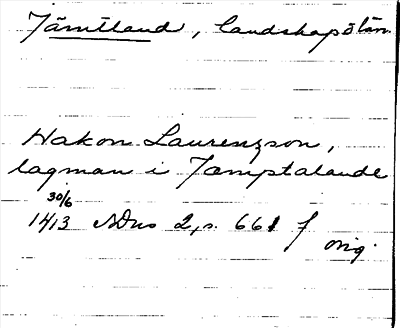 Jämtland, landskapslän
Hakon Laurenzson,
lagman i Jæmptalande
30/6
1413 NDns 2, s. 661 f
orig.